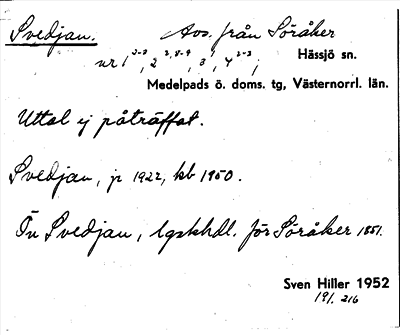 Svedjan. Avs. från Söråker
nr 1²⁻³, 2²,⁸⁻⁹, 3¹, 4²⁻³, Hässjö sn.
Medelpads ö. doms. tg, Västernorrl. län.
Uttal ej påträffat.
Svedjan, jr 1922, kb 1950.
Öv Svedjan, lgskhdl. för Söråker 1851.
Sven Hiller 1952
191. 216